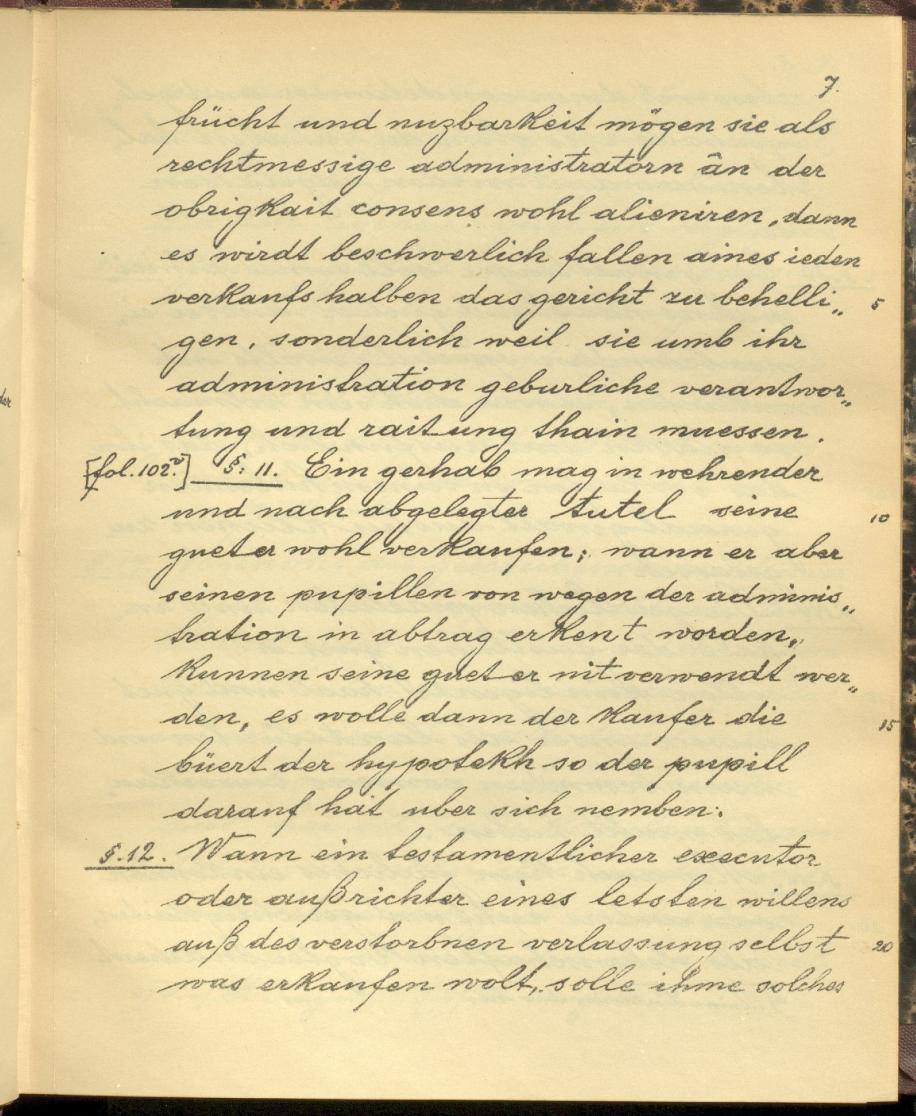 7.
frücht und nuzbarkeit mögen sie als
rechtmessige administratorn ân der
obrigkait consens wohl alieniren, dann
es wirdt beschwerlich fallen aines ieden
verkaufs halben das gericht zu behelli„ 5
gen, sonderlich weil sie umb ihr
administration geburliche verantwor„
tung und raitung thain muessen.
[fol. 102.v] §: 11. Ein gerhab mag in wehrender
und nach abgelegter tutel seine 10
gueter wohl verkaufen; wann er aber
seinen pupillen von wegen der adminis„
tration in abtrag erkent worden,
kunnen seine gueter nit verwendt wer„
den, es wolle dann der kaufer die 15
büert der hypotekh so der pupill
darauf hat uber sich nemben:
§. 12. Wann ein testamentlicher executor
oder außrichter eines letsten willens
auß des verstorbnen verlassung selbst 20
was erkaufen wolt, solle ihme solches
der